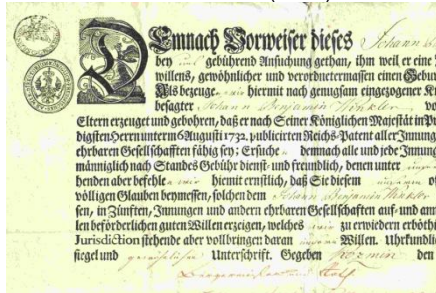 Demnach Vorweiser dieses Johann
bey uns gebührend Ansuchung gethan, ihm weil er eine
willens, gewöhnlicher und verordnetermassen einen Gebur
Als bezeuge wir hiermit nach genugsam eingezogener
besagter Johann Benjamin Winkler von
Eltern erzeuget und gebohren, daß er nach Seiner Königlichen Majestät in Pr
digsten Herrn unterm 6 Augusti 1732. publicirten Reichs-Patent aller Innung
ehrbaren Gesellschafften fähig sey; Ersuche demnach alle und jede Innung
männiglich nach Standes Gebühr dienst- und freundlich, denen unter
henden aber befehle wir hiemit ernstlich, daß Sie diesem unserm
völligen Glauben beymessen, solchen dem Johann Benjamin Winkler
sen, in Zünften, Innungen und andern ehrbaren Gesellschaften auf- und ann
len beförderlichen guten Willen erzeigen, welches wir zu erwiedern erböthi
Jurisdiction stehende aber vollbringen daran unsern Willen. Uhrkundli
siegel und Unterschrift. Gegeben den